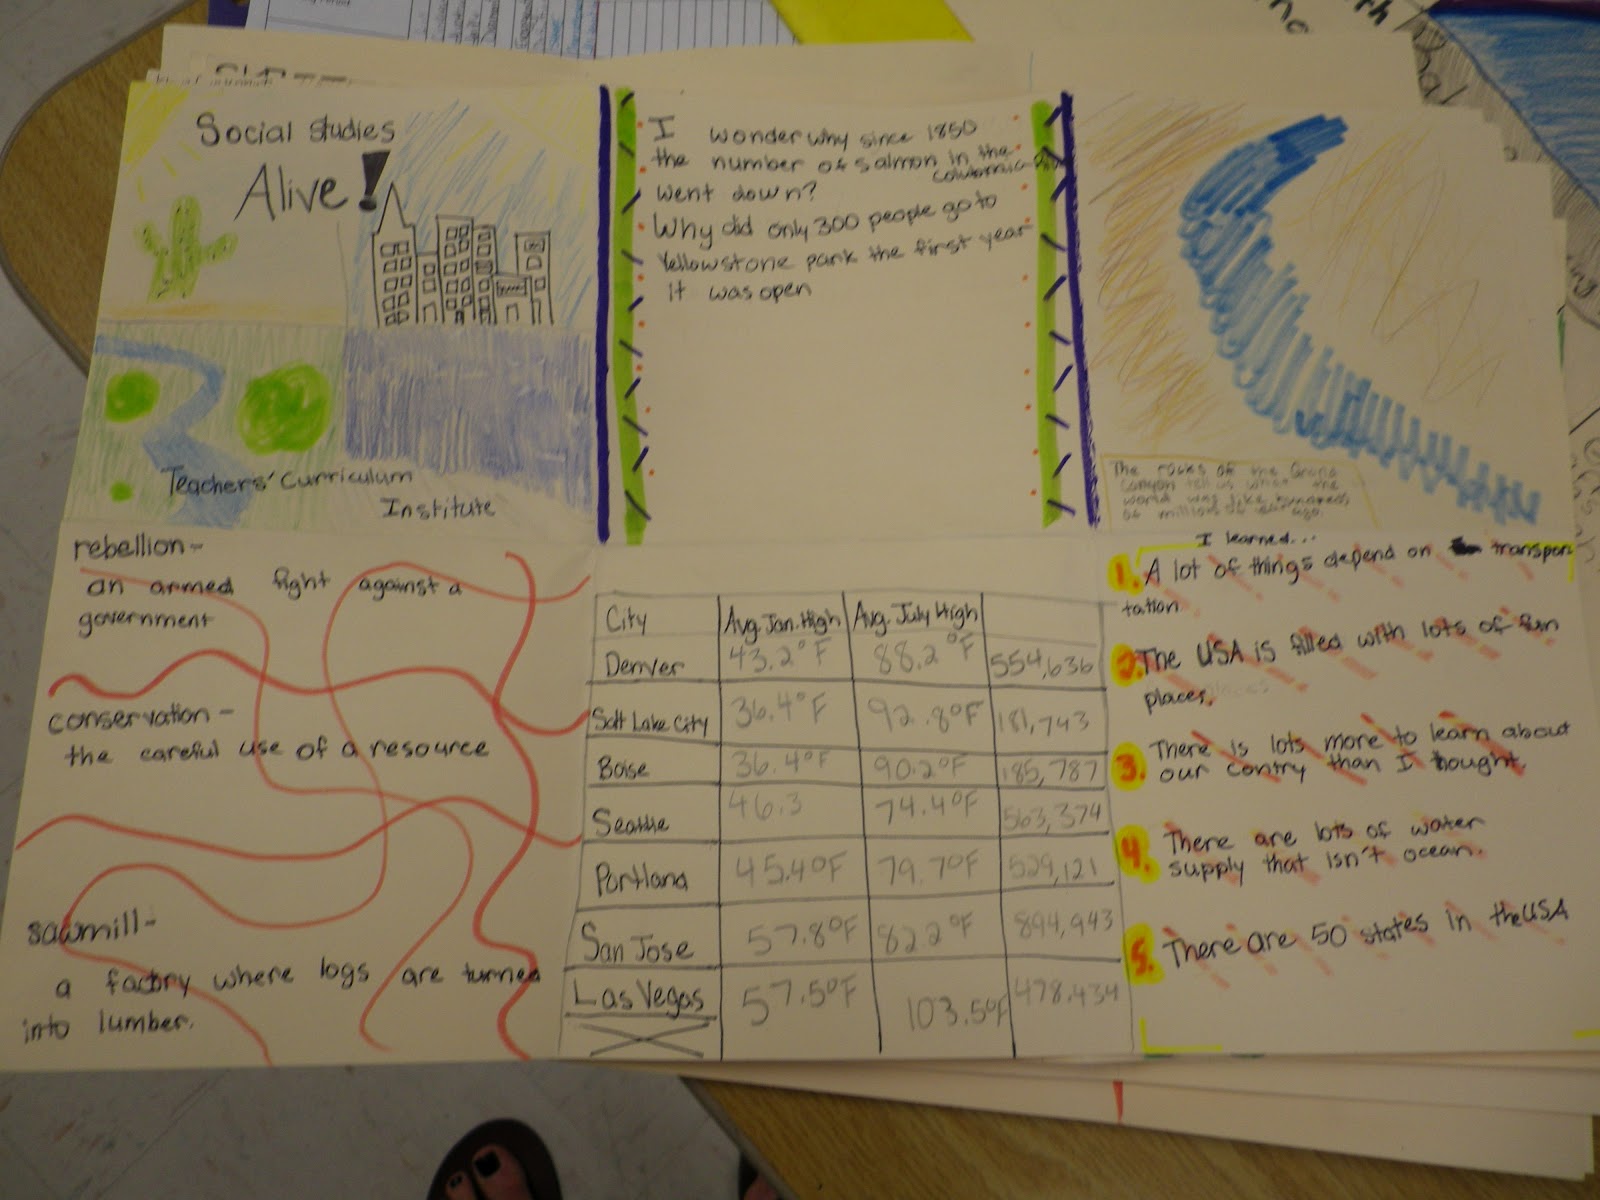 Social Studies
Alive!
Teachers' Curriculum
Institute
I wonder why since 1850
the number of salmon in the
went down?
Why did only 300 people go to
Yellowstone park the first year
it was open
The rocks of the Grand
Canyon tell us what the
world was like hundreds
of millions of years ago.
rebellion-
an armed fight against a
government
conservation-
the careful use of a resource
sawmill-
a factory where logs are turned
into lumber.
City Avg. Jan. High Avg. July High
Denver 43.2°F 88.2°F 554,636
Salt Lake City 36.4°F 92.8°F 181,743
Boise 36.4°F 90.2°F 185,787
Seattle 46.3 74.4°F 563,374
Portland 45.4°F 79.7°F 529,121
San Jose 57.8°F 82.2°F 894,943
Las Vegas 57.5°F 103.5°F 478,434
I learned...
1. A lot of things depend on transpor
tation
2. The USA is filled with lots of fun
places.
3. There is lots more to learn about
our contry than I thought.
4. There are lots of water
supply that isn't ocean.
5. There are 50 states in the USA